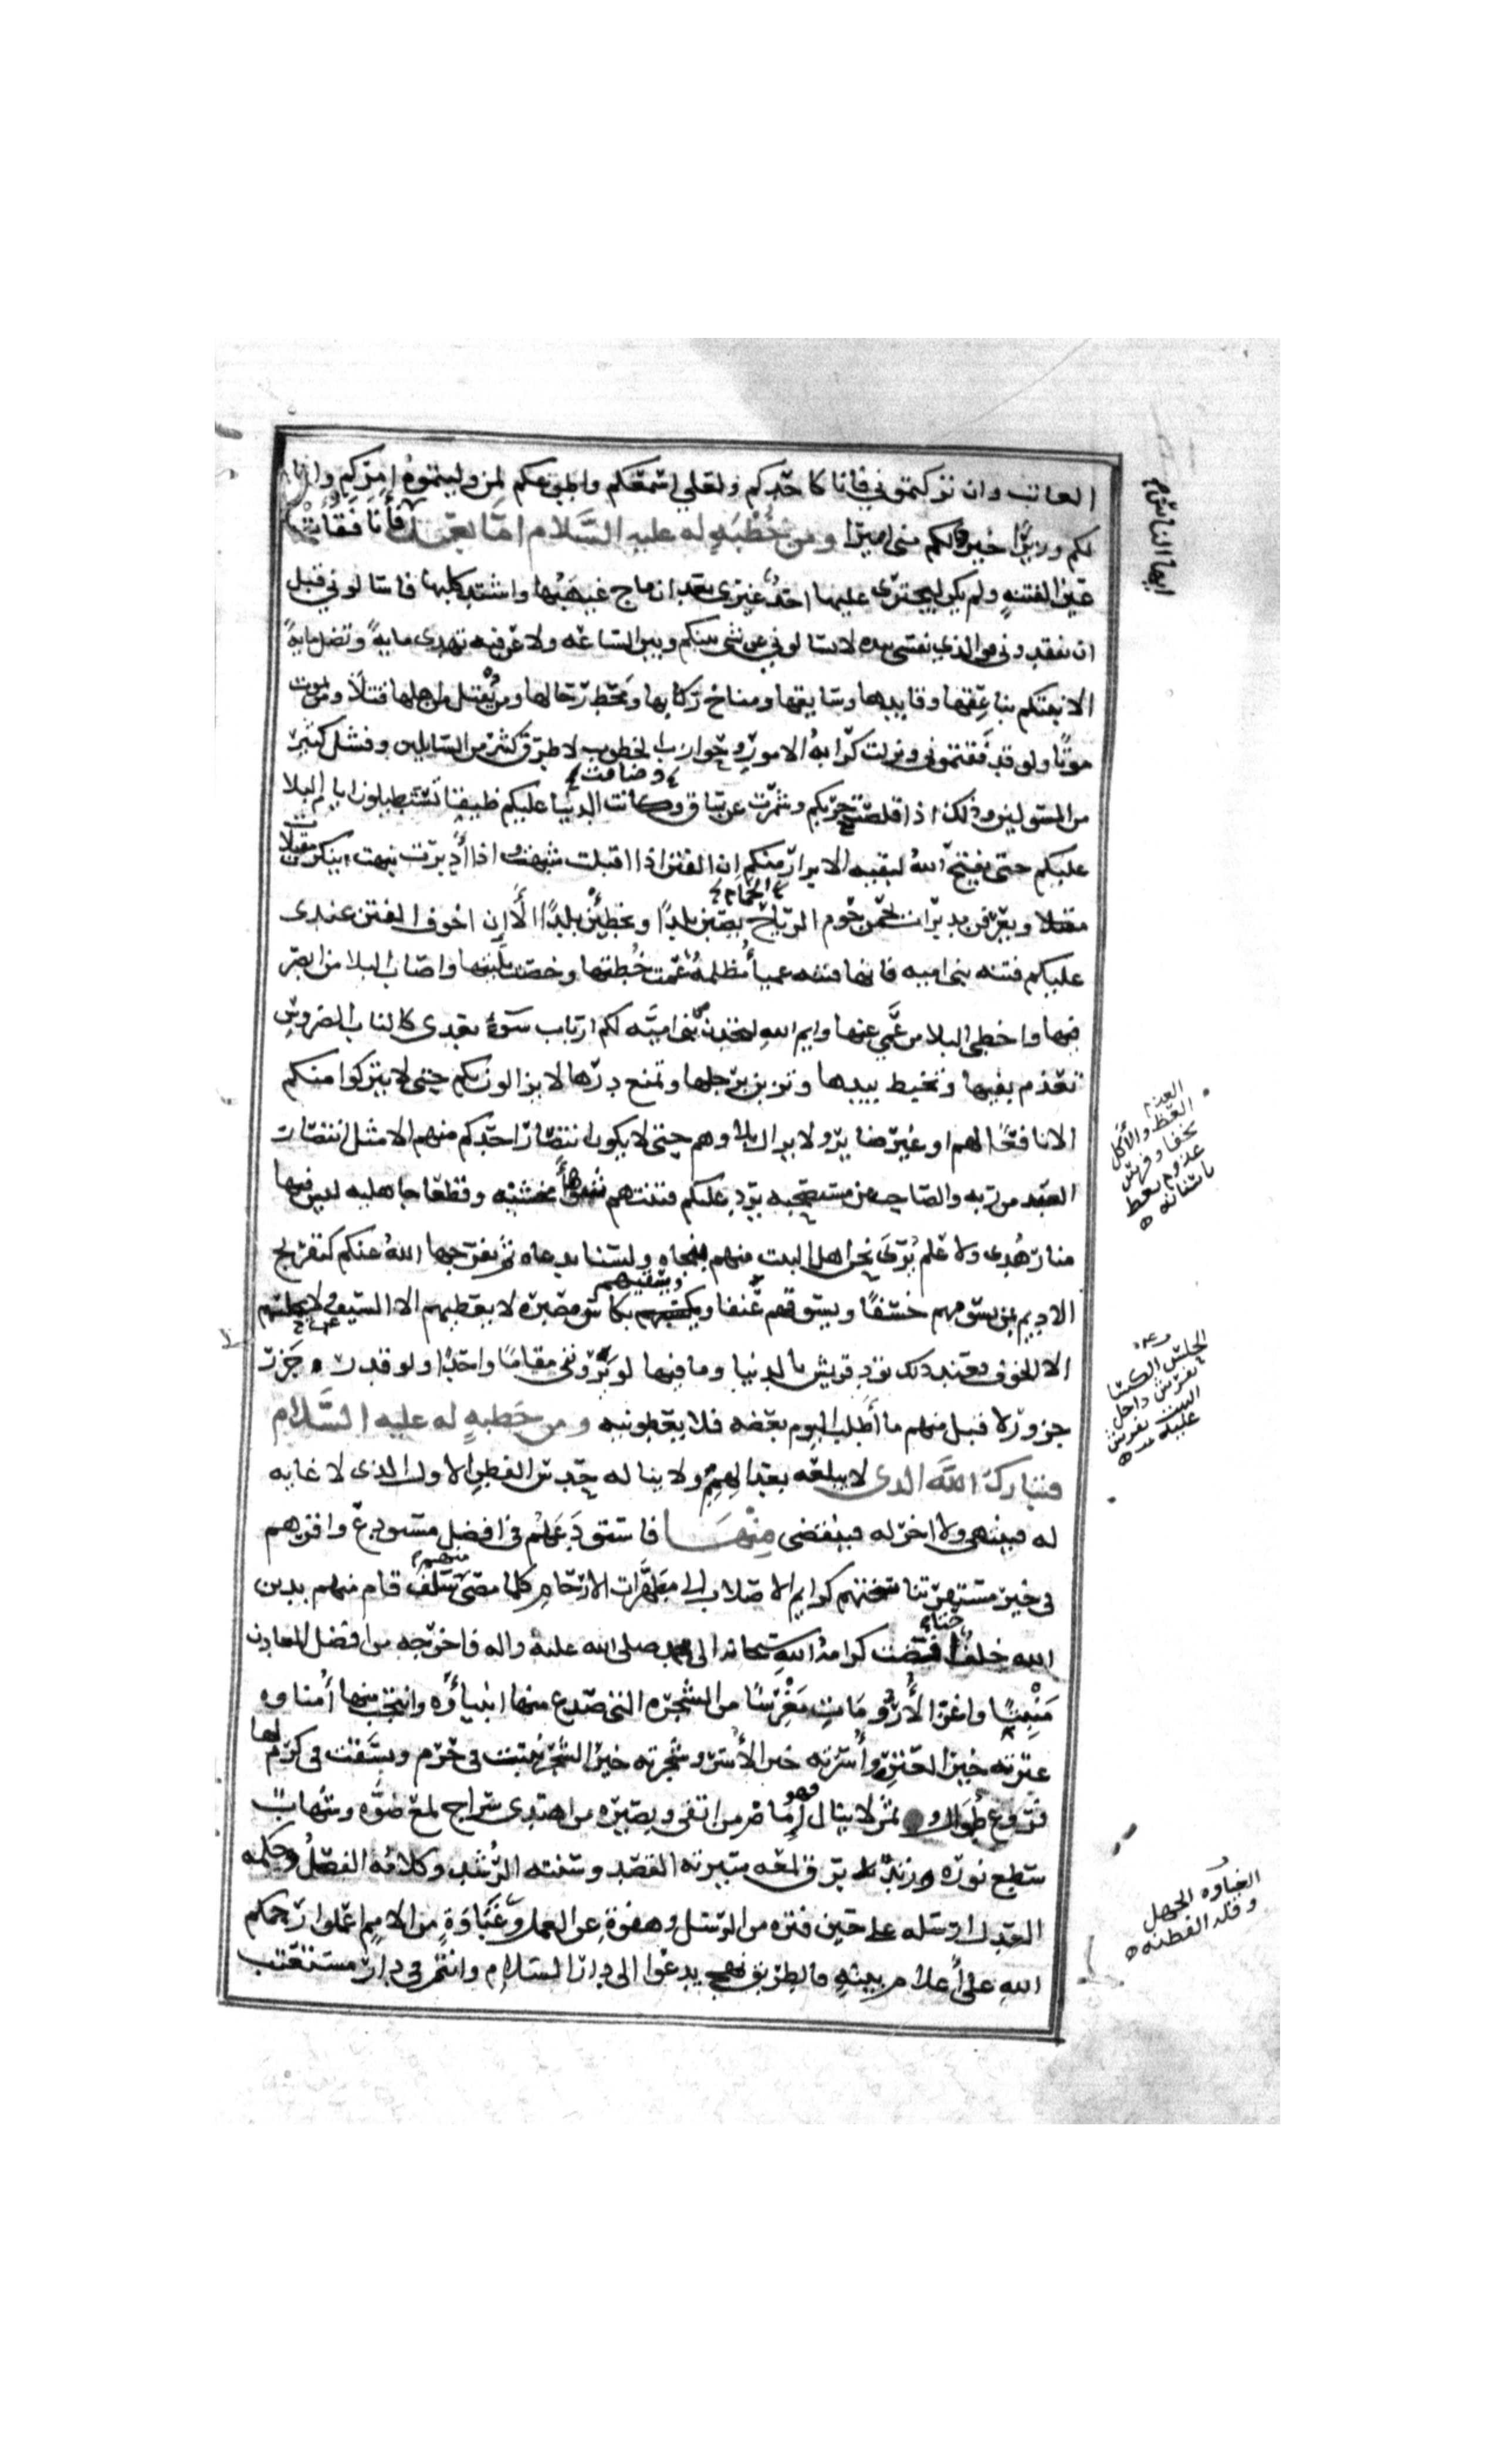 العاتب وان تركتموني فانا كاحدكم ولعلي اسمعكم واطوعكم لمن وليتموه امركم وانا
لكم وزيرا خير لكم مني اميرا ومن خُطْبَةٍ له عليه السَّلام امّا بعد فأنا فَقَأتُ
عين الفتنه ولم يكن ليجترى عليها احدٌ غيرى بعد ان ماج غيهَبُها واشتد كلبها فاسالوني قبل
ان تفقدوني فوالذي نفسي بيده لا تسالوني عن شي بينكم وبين الساعه ولا عن فيه تهدى مايةً وتضل مايةً
الا نبتكم بناعِقها وقايدها وسايقها ومناخ ركابها ومَحَطّ رحالها ومن يُقْتل من اهلها قتلًا ومن يموت
موتًا ولو قد فَقَدتموني ونزلت كرايهُ الامور وحوازب الخطوب لاطرق كثير من السايلين وفشل كثير
من المسولين وذلك اذا قلصت حربكم وشمرت عن ساق وكانت الدنيا عليكم ضيقا تستطيلون ايام البلا
وضاقت
عليكم حتى يفتح اللهُ لبقيه الابرار منكم ان الفتن اذا اقبلت شبهت واذا أدبرت نبهت ينكرن مقبلات
مقبلا ويعرفن مدبرات يحمن حوم الرياح يصبن بلدًا ويخطين بلدًا ألا إن اخوف الفتن عندى
عليكم فتنه بنى اميه فانها فتنه عمياُ مُظلمهُ عَمّت خُطتها وخصت بليتها واصاب البلا من ابصر
فيها واخطى البلا من عَمِى عنها وايم اللهِ لتجدن بني اميّه لكم ارباب سَوْءٍ بعدى كالناب الضروسِ
تعذم بفيها وتخبط بيدها وتزبن برجلها وتمنع درّها لا يزالون بكم حتى لا يتركوا منكم
الا نافعًا لهم او غير ضاير ولا يزال بلاوهم حتى لا يكون انتصار احدكم منهم الا مثل انتصار
العبد من ربه والصاحب من مستصحبه ترد عليكم فتنتهم شوهاً مخشيه وقطعًا جاهليه ليس فيها
منار هُدى ولا علم يُرَى نحن اهل البيت منهم بمنجاه ولسنا بدعاه ثم يفرجها اللهُ عنكم كتفريج
الاديم بمن يسومهم خسفًا ويسوقهم عُنفا ويسقيهم بكاس مصبره لا يعطيهم الا السيف ولا يحلسهم
الا الخوف فعند ذلك تود قريش بالدنيا وما فيها لو يَرَوننى مقامًا واحدًا ولو قدر جَزر
جزور لاقبل منهم ما أطلب اليوم بعضه فلا يعطونيه ومن خطبهٍ له عليه السّلام
فتبارك اللهَ الذى لا يبلغه بعد الهمم ولا يناله حدس الفطن الاول الذى لا غايه
له فينتهى ولا اخر له فينقضى مِنْهَــا فاستودعَهُم فى افضل مستودع واقرهم
فى خير مستقر تناسختهم كرايم الاصلاب الى مطهّرات الارحام كلما مضى منهم سلف قام منهم بدين
الله خلف حتى افضت كرامة الله سبحانه الى محمد صلى الله عليه واله فاخرجه من افضل المعادن
مَنْبِتًا واعز الأُرُومَاتِ مَغْرِسًا من الشجره التى صدع منها انبياءَه وانتجب منها اُمناوه
عترته خير العترِ واُسرته خير الأُسر وشجرته خير الشجر نبتت في حرم وبسقت في كرم لها
فروع طِوَال وثمر لا ينال فهو إِمَام من اتقى وبصيره من اهتدى سراج لمع ضوّه وشهاب
سطع نوره وزند برق لمعه سيرته القصد وسنته الرُّشد وكلامُه الفصْلُ وحكمه
العدل ارسله على حين فتره من الرسل وهفوةٍ عن العمل وغَبَاوَةٍ من الامم اعملوا رحمكم
الله على أَعلام بينهٍ فالطريق نهج يدعوا الى دار السلام وانتم فى دار مستعتب
ايها الناس
العذم
العض والأكل
بجفا وفرس
عذوم يعض
باسنانه
الحلس الكسا
يفرش داخل
البيت يفرش
عليه
الغباوه الجهل
وقله الفطنه